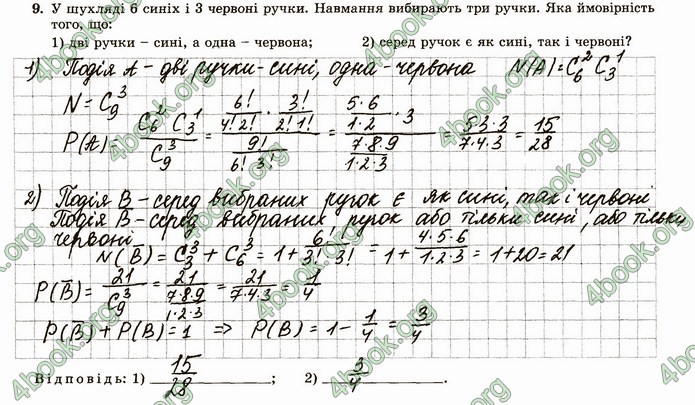 9. У шухляді 6 синіх і 3 червоні ручки. Навмання вибирають три ручки. Яка ймовірність
того, що:
1) дві ручки – сині, а одна – червона; 2) серед ручок є як сині, так і червоні?
1) Подія A – дві ручки – сині, одна – червона N(A) = C₆² C₃¹
N = C₉³
P(A) = (C₆² C₃¹)/C₉³ = (6!/(4! 2!) · 3!/(2! 1!))/(9!/(6! 3!)) = ((5·6)/(1·2) · 3)/((7·8·9)/(1·2·3)) = (5·3·3)/(7·4·3) = 15/28
2) Подія B – серед вибраних ручок є як сині, так і червоні
Подія B̅ – серед вибраних ручок або тільки сині, або тільки
червоні.
N(B̅) = C₃³ + C₆³ = 1 + 6!/(3! 3!) = 1 + (4·5·6)/(1·2·3) = 1+20 = 21
P(B̅) = 21/C₉³ = 21/((7·8·9)/(1·2·3)) = 21/(7·4·3) = 1/4
P(B̅) + P(B) = 1 ⇒ P(B) = 1 – 1/4 = 3/4
Відповідь: 1) 15/28; 2) 3/4.
4book.org